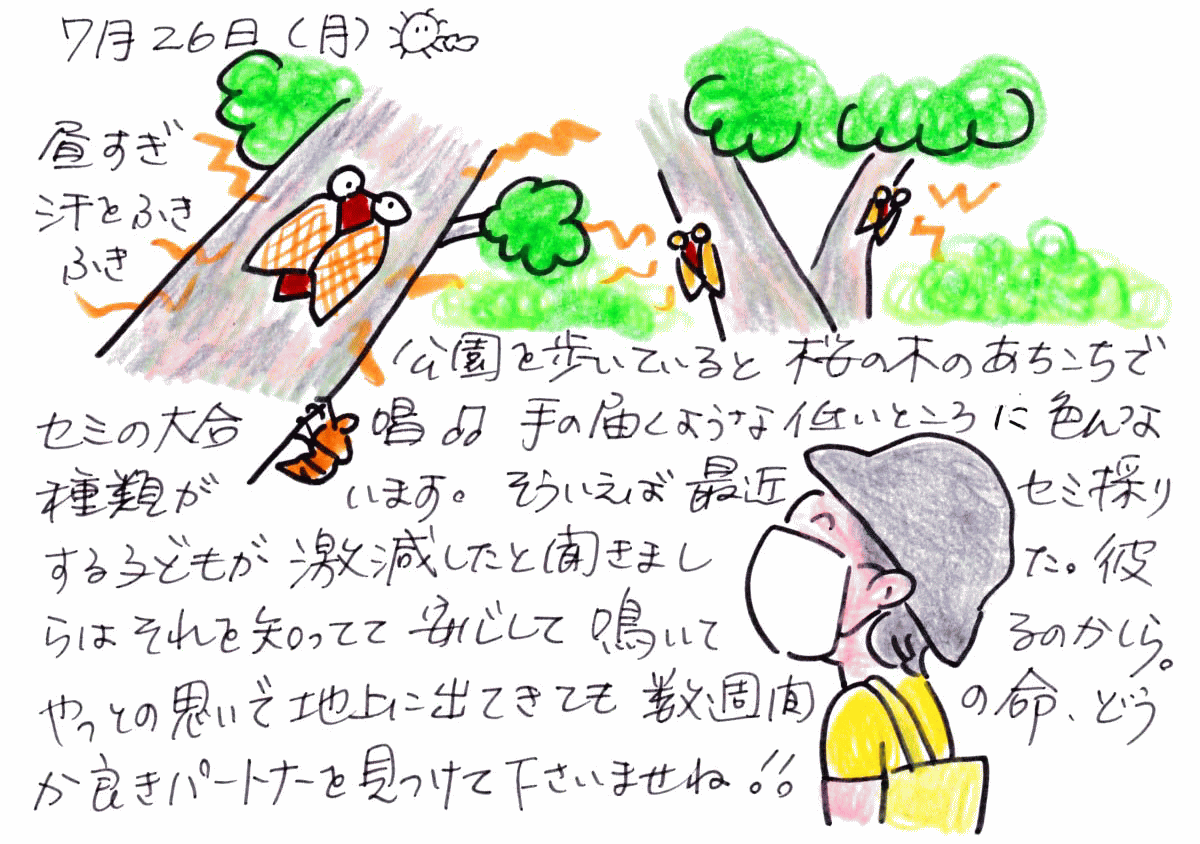 7月26日(月)
昼すぎ
汗をふき
ふき
公園を歩いていると桜の木のあちこちで
セミの大合唱♫手の届くような低いところに色んな
種類がいます。そういえば最近セミ採り
する子どもが激減したと聞きました。彼
らはそれを知ってて安心して鳴いてるのかしら。
やっとの思いで地上に出てきても数週間の命、どう
か良きパートナーを見つけて下さいませね!!